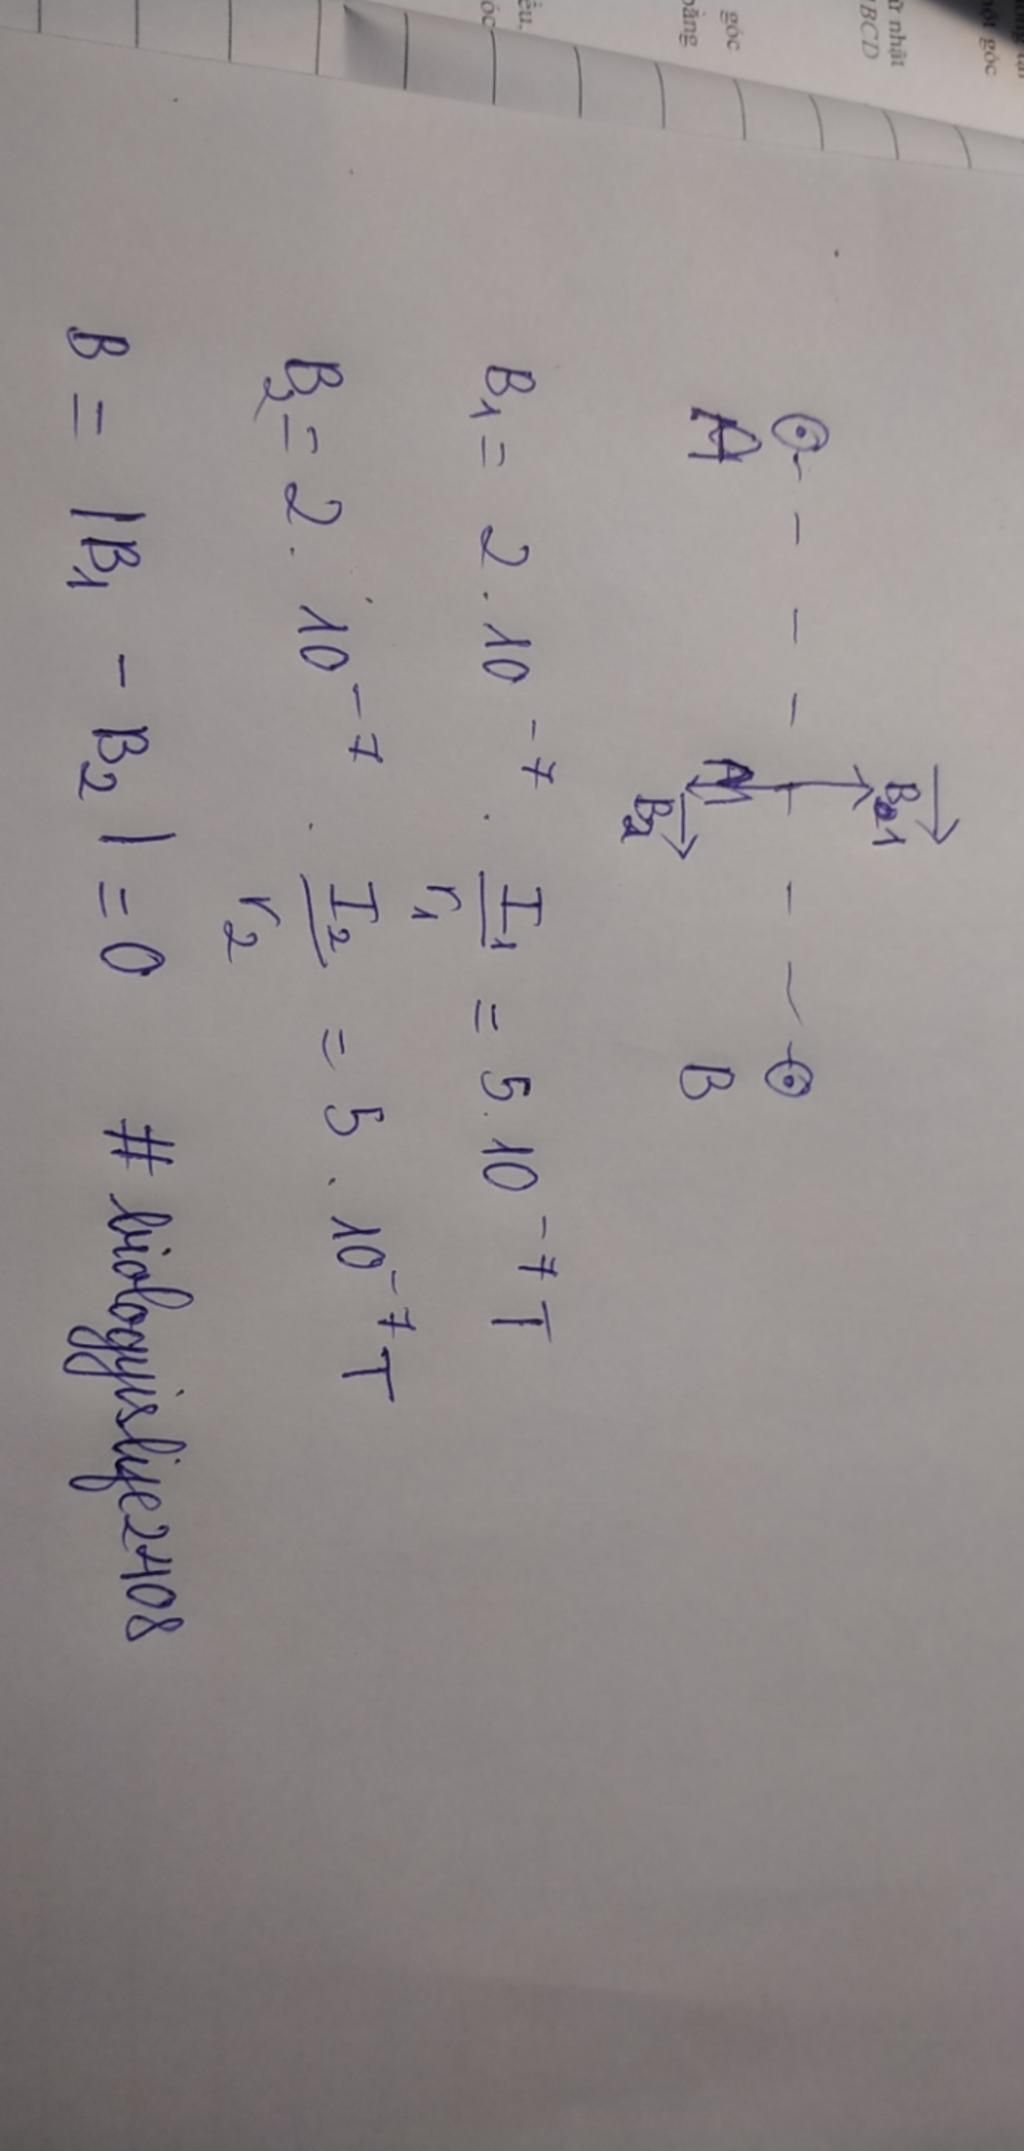 ữ nhật
ABCD
góc
bằng
một góc
ều.
óc
A
M
B
B₁
B₂
B₁ = 2.10⁻⁷ . I₁/r₁ = 5.10⁻⁷ T
B₂ = 2.10⁻⁷ . I₂/r₂ = 5.10⁻⁷ T
B = |B₁ - B₂| = 0 # biologyislife2408